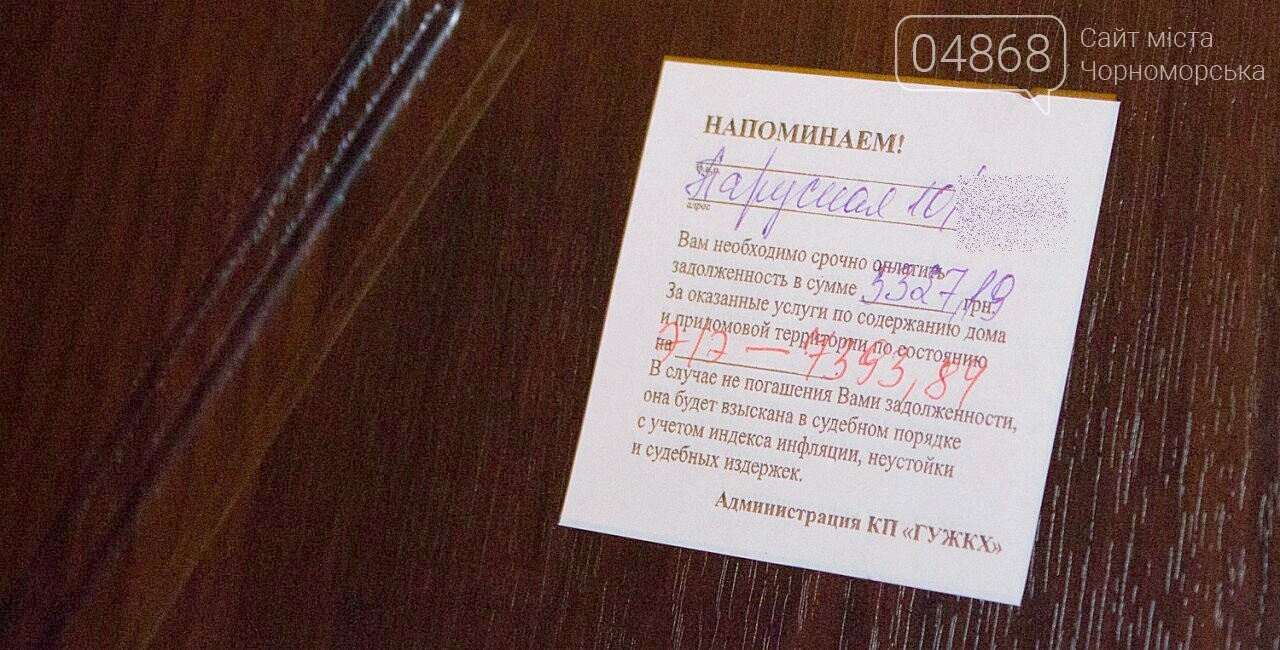 04868
Сайт міста
Чорноморська
НАПОМИНАЕМ!
ф.и.о.
Парусная 10,
адрес
Вам необходимо срочно оплатить
задолженность в сумме 3327,19 грн.
За оказанные услуги по содержанию дома
и придомовой территории по состоянию
на
717 — 7393,84
В случае не погашения Вами задолженности,
она будет взыскана в судебном порядке
с учетом индекса инфляции, неустойки
и судебных издержек.
Администрация КП «ГУЖКХ»